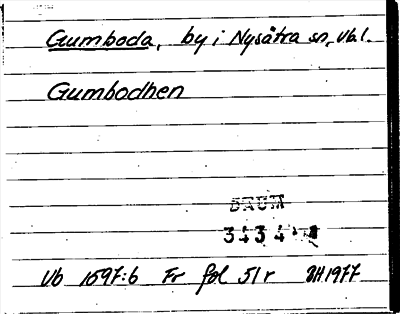 Gumboda, by i Nysätra sn, Vb.l.
Gumbodhen
DAUM
3434
Vb 1597:6 Fr fol 51r BH 1977